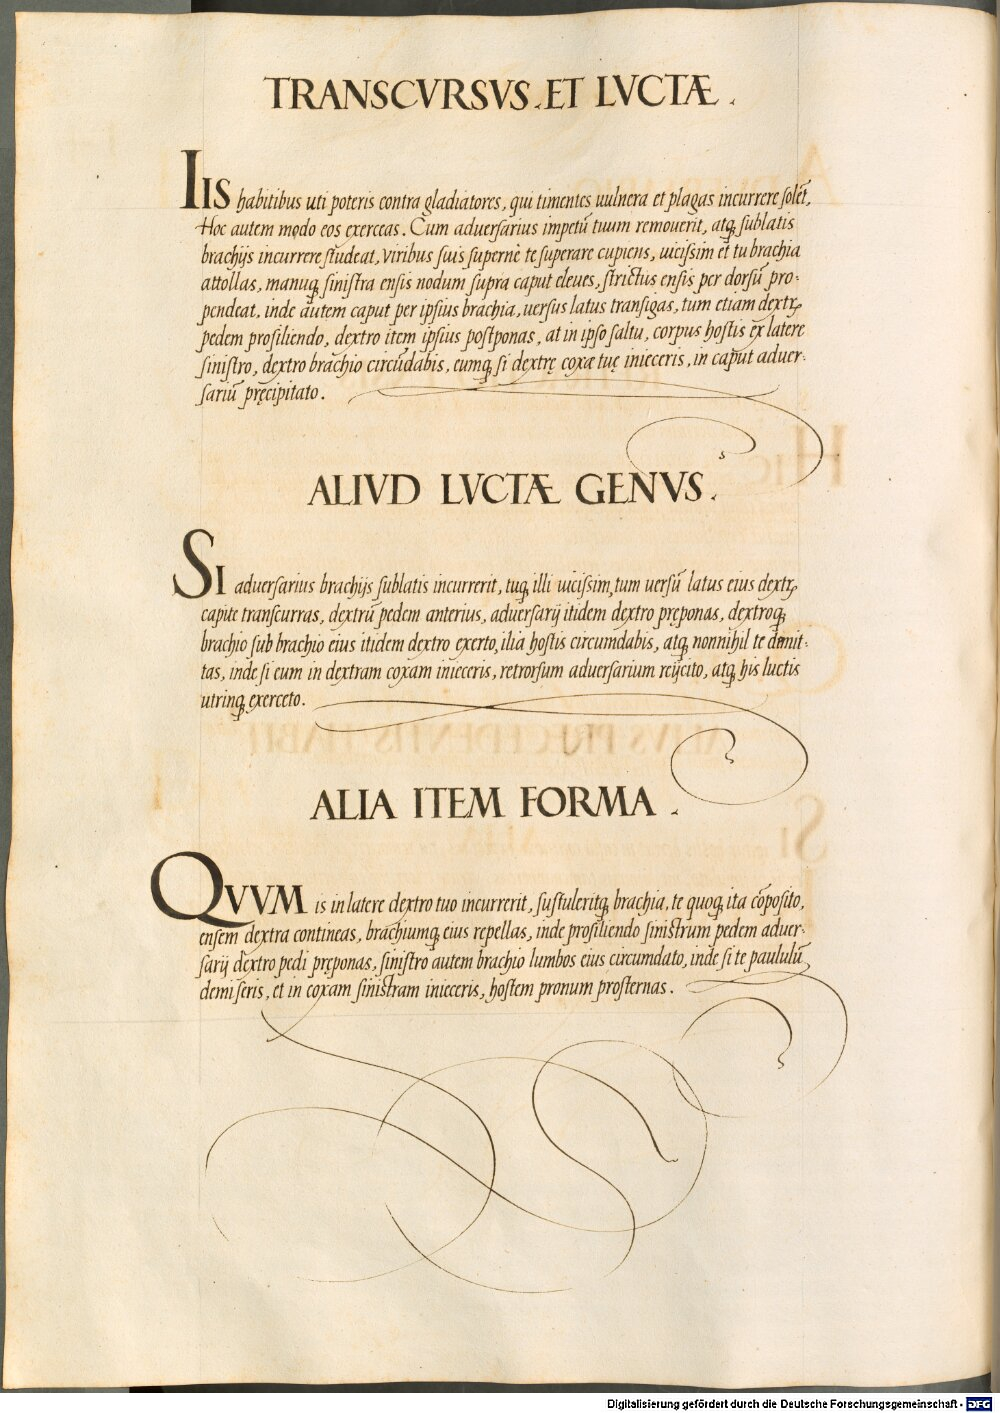 TRANSCVRSVS. ET LVCTÆ.
IIS habitibus uti poteris contra gladiatores, qui timentes uulnera et plagas incurrere solēt,
Hoc autem modo eos exerceas. Cum aduersarius impetū tuum remouerit, atq; sublatis
brachijs incurrere studeat, viribus suis supernè te superare cupiens, uicissim et tu brachia
attollas, manuq; sinistra ensis nodum supra caput eleues, strictus ensis per dorsū pro-
pendeat, inde autem caput per ipsius brachia, uersus latus transigas, tum etiam dextrũ
pedem prosiliendo, dextro item ipsius postponas, at in ipso saltu, corpus hostis ex latere
sinistro, dextro brachio circūdabis, eumq; si dextrę coxæ tuę inieceris, in caput aduer-
sariū pręcipitato.
ALIVD LVCTÆ GENVS.
SI aduersarius brachijs sublatis incurrerit, tuq; illi uicissim, tum uersū latus eius dextrũ
capite transcurras, dextrū pedem anterius, aduersarij itidem dextro pręponas, dextroq;
brachio sub brachio eius itidem dextro exerto, ilia hostis circumdabis, atq; nonnihil te dimit-
tas, inde si eum in dextram coxam inieceris, retrorsum aduersarium reijcito, atq; his luctis
utrinq; exerceto.
ALIA ITEM FORMA.
QVVM is in latere dextro tuo incurrerit, sustuleritq; brachia, te quoq; ita cōposito,
ensem dextra contineas, brachiumq; eius repellas, inde prosiliendo sinistrum pedem aduer-
sarij dextro pedi pręponas, sinistro autem brachio lumbos eius circumdato, inde si te paululū
demiseris, et in coxam sinistram inieceris, hostem pronum prosternas.
Digitalisierung gefördert durch die Deutsche Forschungsgemeinschaft - DFG